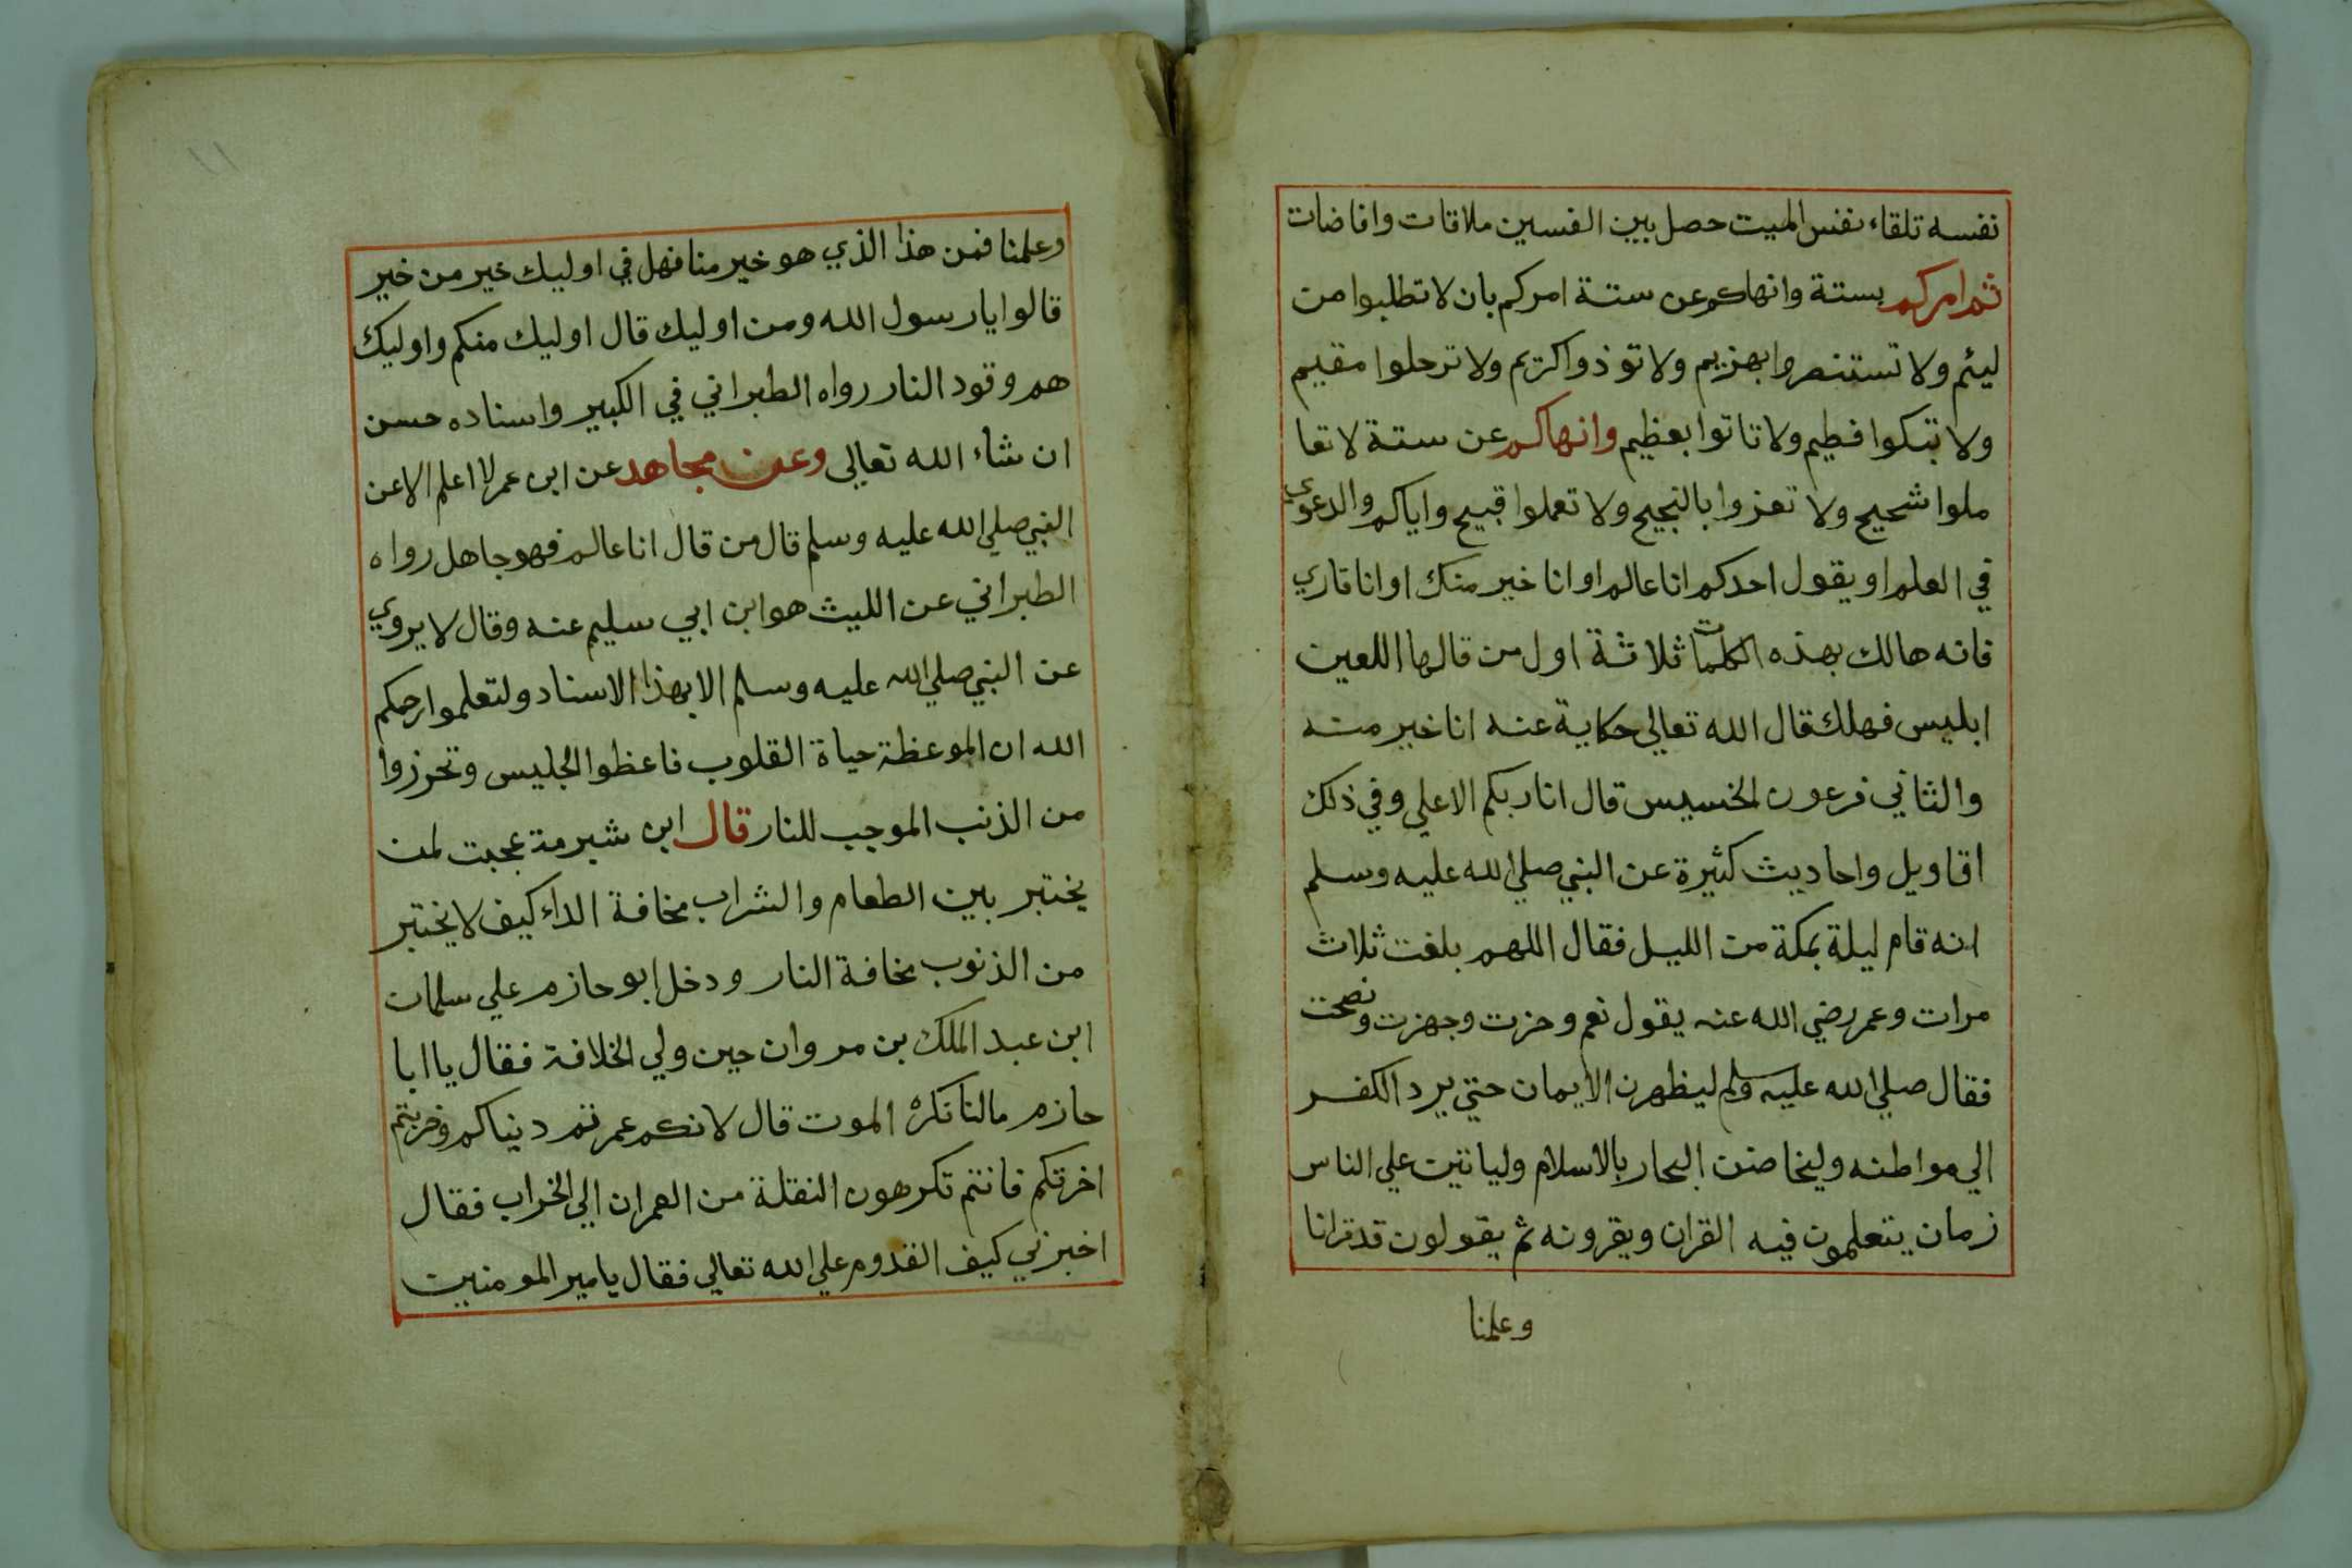 نفسه تلقاء نفس الميت حصل بين الفسين ملاقات وافاضات
ثم امركم بستة وانهاكم عن ستة امركم بان لا تطلبوا من
ليئم ولا تستنصروا بهزيم ولا توذوا كريم ولا ترحلوا مقيم
ولا تبكوا فطيم ولا تاتوا بعظيم وانهاكم عن ستة لا تعا
ملوا شحيح ولا تعزوا بالنجيح ولا تعملوا قبيح واياكم والدعوي
في العلم او يقول احدكم انا عالم او انا خير منك او انا قاري
فانه هالك بهذه الكلمات ثلاثة اول من قالها اللعين
ابليس فهلك قال الله تعالي حكاية عنه انا خير منه
والثاني فرعون الخسيس قال انا ربكم الاعلي وفي ذلك
اقاويل واحاديث كثيرة عن النبي صلي الله عليه وسلم
انه قام ليلة بمكة من الليل فقال اللهم بلغت ثلاث
مرات وعمر رضي الله عنه يقول نعم وحزت وجهزت ونصحت
فقال صلي الله عليه وسلم ليظهرن الايمان حتي يرد الكفر
الي مواطنه وليخاضن البحار بالاسلام ولياتين علي الناس
زمان يتعلمون فيه القران ويقرونه ثم يقولون قد قرانا
وعلمنا
١١
وعلمنا فمن هذا الذي هو خير منا فهل في اوليك خير من خير
قالوا يا رسول الله ومن اوليك قال اوليك منكم واوليك
هم وقود النار رواه الطبراني في الكبير واسناده حسن
ان شاء الله تعالي وعن مجاهد عن ابن عمر لا اعلم الا عن
النبي صلي الله عليه وسلم قال من قال انا عالم فهو جاهل رواه
الطبراني عن الليث هو ابن ابي سليم عنه وقال لا يروي
عن النبي صلي الله عليه وسلم الا بهذا الاسناد ولتعلموا رحمكم
الله ان الموعظة حياة القلوب فاعظوا الجليس وتحرزوا
من الذنب الموجب للنار قال ابن شبرمة عجبت لمن
يختبر بين الطعام والشراب مخافة الداء كيف لا يختبر
من الذنوب مخافة النار ودخل ابو حازم علي سلمان
ابن عبد الملك بن مروان حين ولي الخلافة فقال يا ابا
حازم مالنا نكره الموت قال لانكم عمرتم دنياكم وخربتم
اخرتكم فانتم تكرهون النقلة من العمران الي الخراب فقال
اخبرني كيف القدوم علي الله تعالي فقال يا مير المومنين